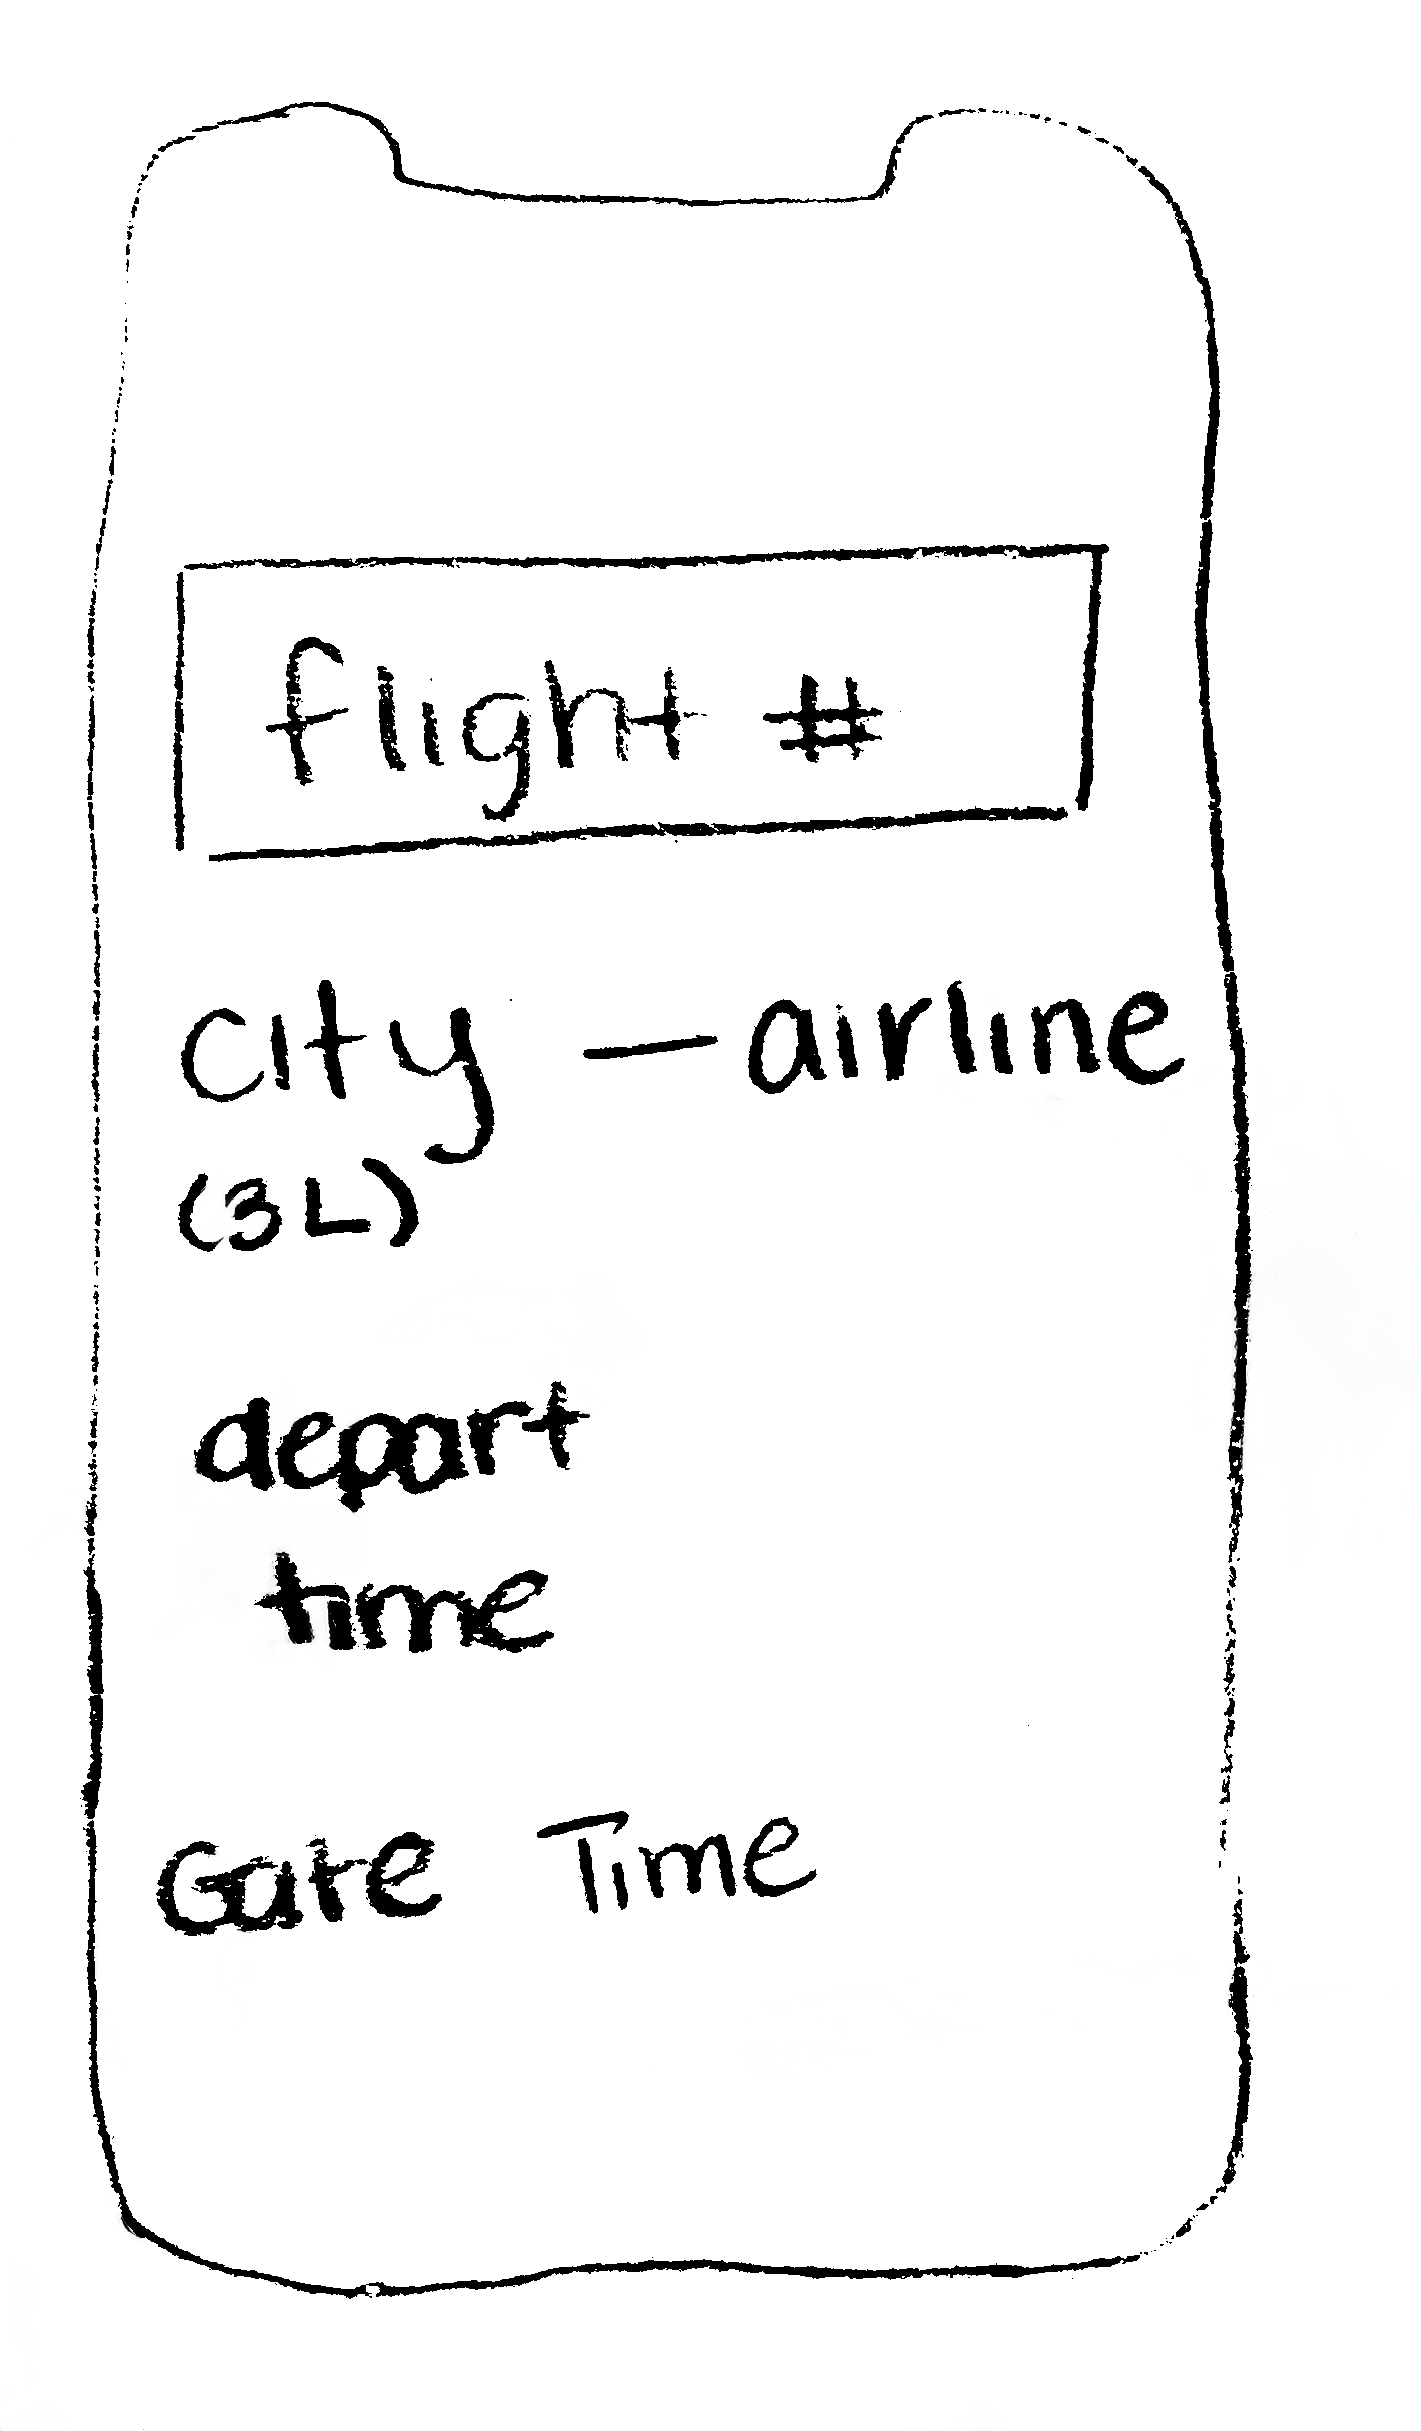 flight #
city — airline
(3L)
depart
time
Gate Time